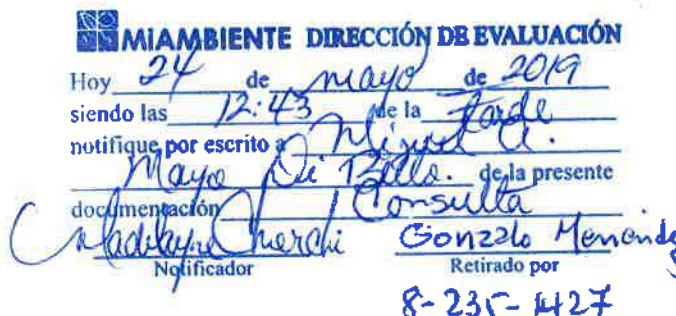 MIAMBIENTE DIRECCIÓN DE EVALUACIÓN
Hoy 24 de mayo de 2019
siendo las 12:43 de la tarde
notifique por escrito a Miguel A.
Mayo Di Bello. de la presente
documentación Consulta
Gonzalo Menende
Notificador Retirado por
8-235-